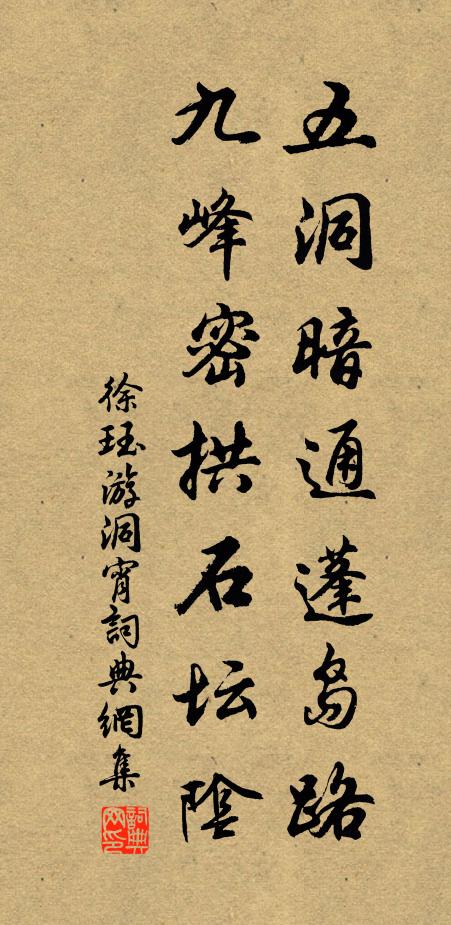 五洞暗通蓬岛路
九峰密拱石坛陰
徐珏游洞宵詞典網集
詞典网印